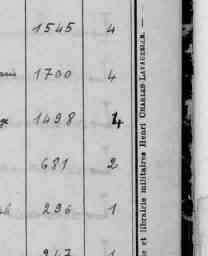 1545 4
1700 4
1498 4
681 2
296 1
947 1
e et librairie militaires Henri CHARLES-LAVAUZELLE. —